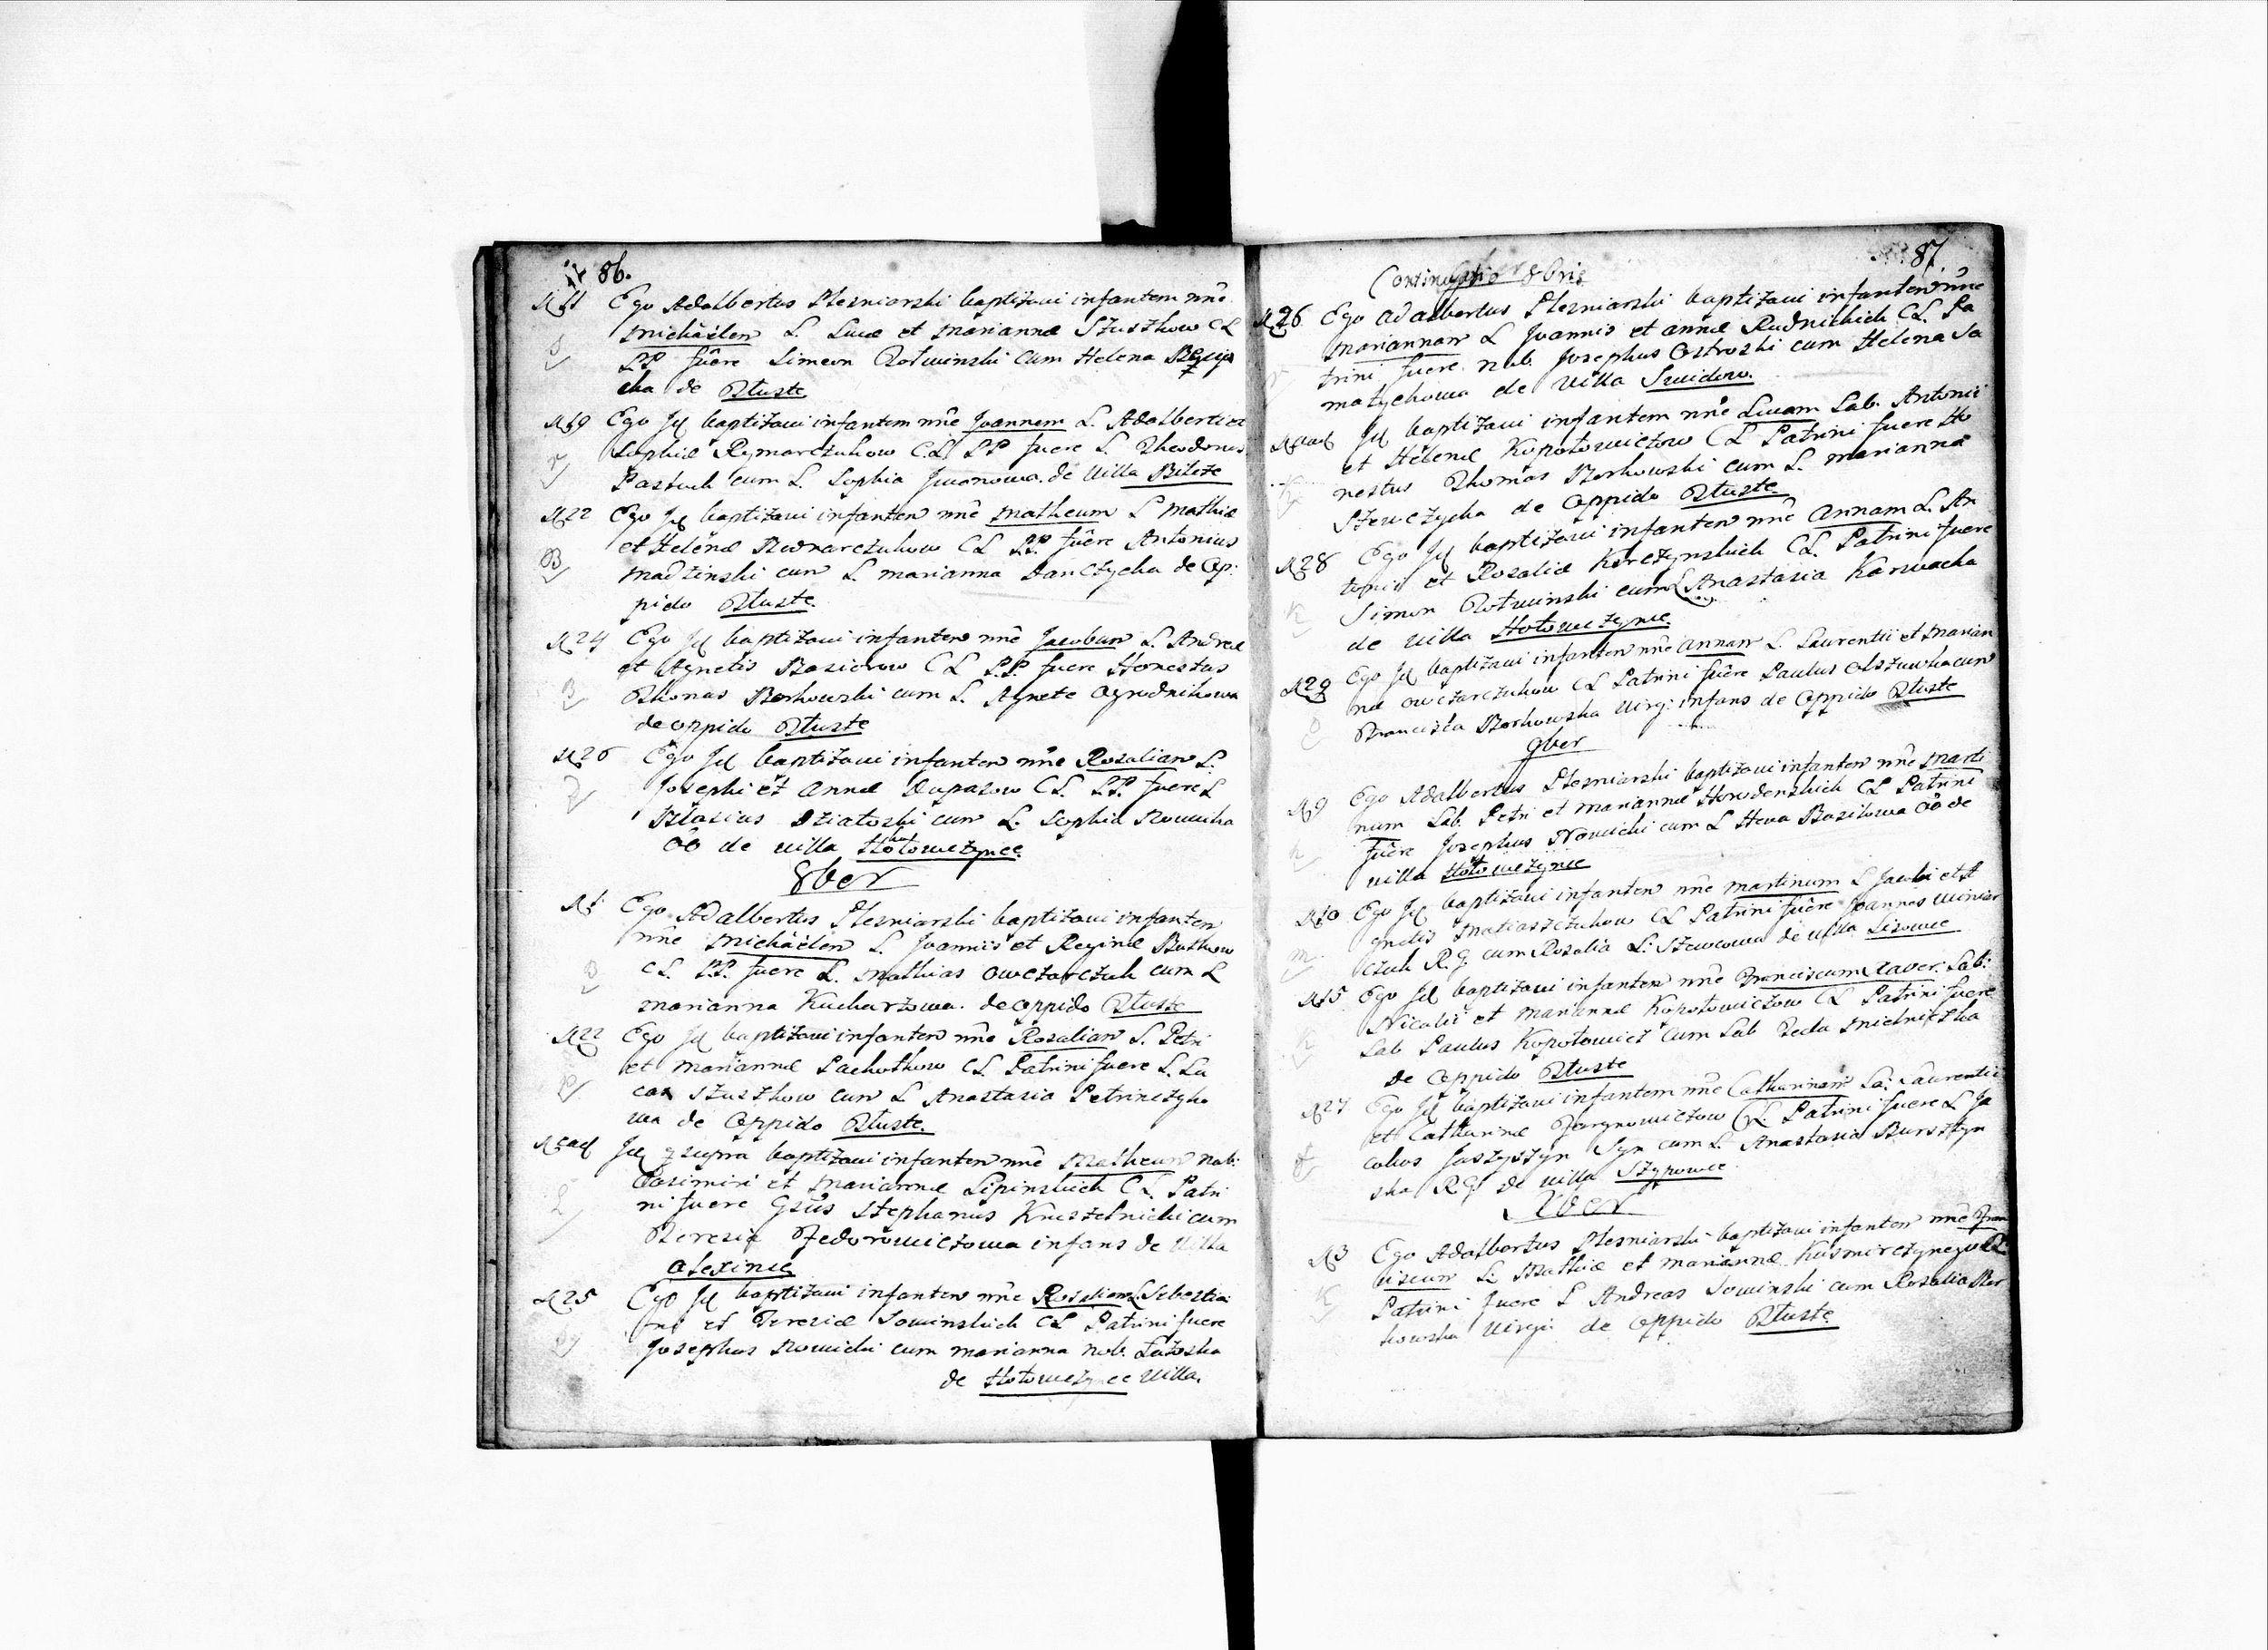 86.
11 Ego Adalbertus Plesniarski baptizavi infantem nne
Michäelem L. Lucæ et Mariannæ Szuszkow CL
PP. fuêre Simeon Rotwinski cum Helena
cha de Tłuste
19 Ego Jd baptizavi infantem nne Joannem L. Adalberti et
Sophiæ Rymarczukow C.L. PP fuere L. Theodorus
Pastuch cum L. Sophia Jwanowa de Villa Bilcze
22 Ego Jd baptizavi infantem nne Matheum L Mathiæ
et Helenæ Bednarczukow CL PP. fuêre Antonius
Madzinski cum L. Marianna Danczycha de Op:
pido Tłuste
24 Ego Jd baptizavi infantem nne Jacobum L. Andreæ
et Agnetis Basiorow CL P.P. fuere Honestus
Thomas Borkowski cum L. Agnete Ogrodnikowa
de oppido Tłuste
26 Ego Jd baptizavi infantem nne Rosaliam L.
Josephi et Annæ Dupazow CL. PP. fuere L
Blasius Dziatoski cum L. Sophia Nowicka
ôô de villa Hołowczynce
8ber
1 Ego Adalbertus Plesniarski baptizavi infantem
nne Michäelem L. Joannis et Reginæ Butkow
CL. PP. fuere L. Mathias Owczarczuk cum L
Marianna Kucharzowa de oppido Tłuste
22 Ego Jd baptizavi infantem nne Rosaliam L. Petri
et Mariannæ Pachotkow CL. Patrini fuere L. Lu
cas Szuszkow cum L Anastasia Petrinczyko
wa de Oppido Tłuste.
ead Jd q supra baptizavi infantem nne Matheum Nob:
Casimiri et Mariannæ Lipinskich CL. Patri
ni fuere Gsus Stephanus Kruszelnicki cum
Teresia Fedorowiczowa infans de Villa
Olexince
25 Ego Jd baptizavi infantem nne Rosaliam L. Sebastia
ni et Teresiæ Sowinskich CL Patrini fuere
Josephus Nowicki cum Marianna Nob. Zatoska
de Hołowczynce Villa.
87
Continuatio 8bris
26 Ego Adalbertus Plesniarski baptizavi infantem nne
Mariannam L Joannis et Annæ Rudnickich CL. Pa
trini fuere Nob. Josephus Ostroski cum Helena Sa
matychowa de Villa Swidowa
ead Jd baptizavi infantem nne Lucam Lab. Antonii
et Helenæ Kopotowiczow CL Patrini fuere Ho
nestus Thomas Borkowski cum L. Marianna
Szewczycha de Oppido Tłuste
28 Ego Jd baptizavi infantem nne Annam L. An
tonii et Rosaliæ Korczynskich CL. Patrini fuere
Simon Rotwinski cum L Anastasia Karwacka
de Villa Hołowczynce
29 Ego Jd baptizavi infantem nne Annam L. Laurentii et Marian
næ Owczarczukow CL Patrini fuêre Paulus Olszuwka cum
Francisca Borkowska Virg: infans de Oppido Tłuste
9ber
9 Ego Adalbertus Plesniarski baptizavi infantem nne Marti
num Lab. Petri et Mariannæ Horodenskich CL Patrini
fuêre Josephus Nowicki cum L Hewa Basikowa ôô de
villa Hołowczynce
10 Ego Jd baptizavi infantem nne Martinum L Jacobi et A
gnetis Matiaszczukow CL Patrini fuêre Joannes Winiar
czuk R.G. cum Rosalia L: Szewcowa de villa Lisowce
15 Ego Jd baptizavi infantem nne Franciscum Xaver: Lab:
Nicolai et Mariannæ Kopotowiczow CL Patrini fuere
Lab Paulus Kopotowicz cum Lab Tecla Mielnicska
de Oppido Tłuste
27 Ego Jd baptizavi infantem nne Catharinam La: Laurentii
et Catharinæ CL Patrini fuere L Ja
cobus Syn cum L. Anastasia Bursztyn
ska RG de villa Szypowce
Xber
3 Ego Adalbertus Plesniarski baptizavi infantem nne Fran
ciscum L. Mathiæ et Mariannæ CL
Patrini fuere L Andreas Sowinski cum Rosalia Bor
kowska Virgi: de Oppido Tłuste